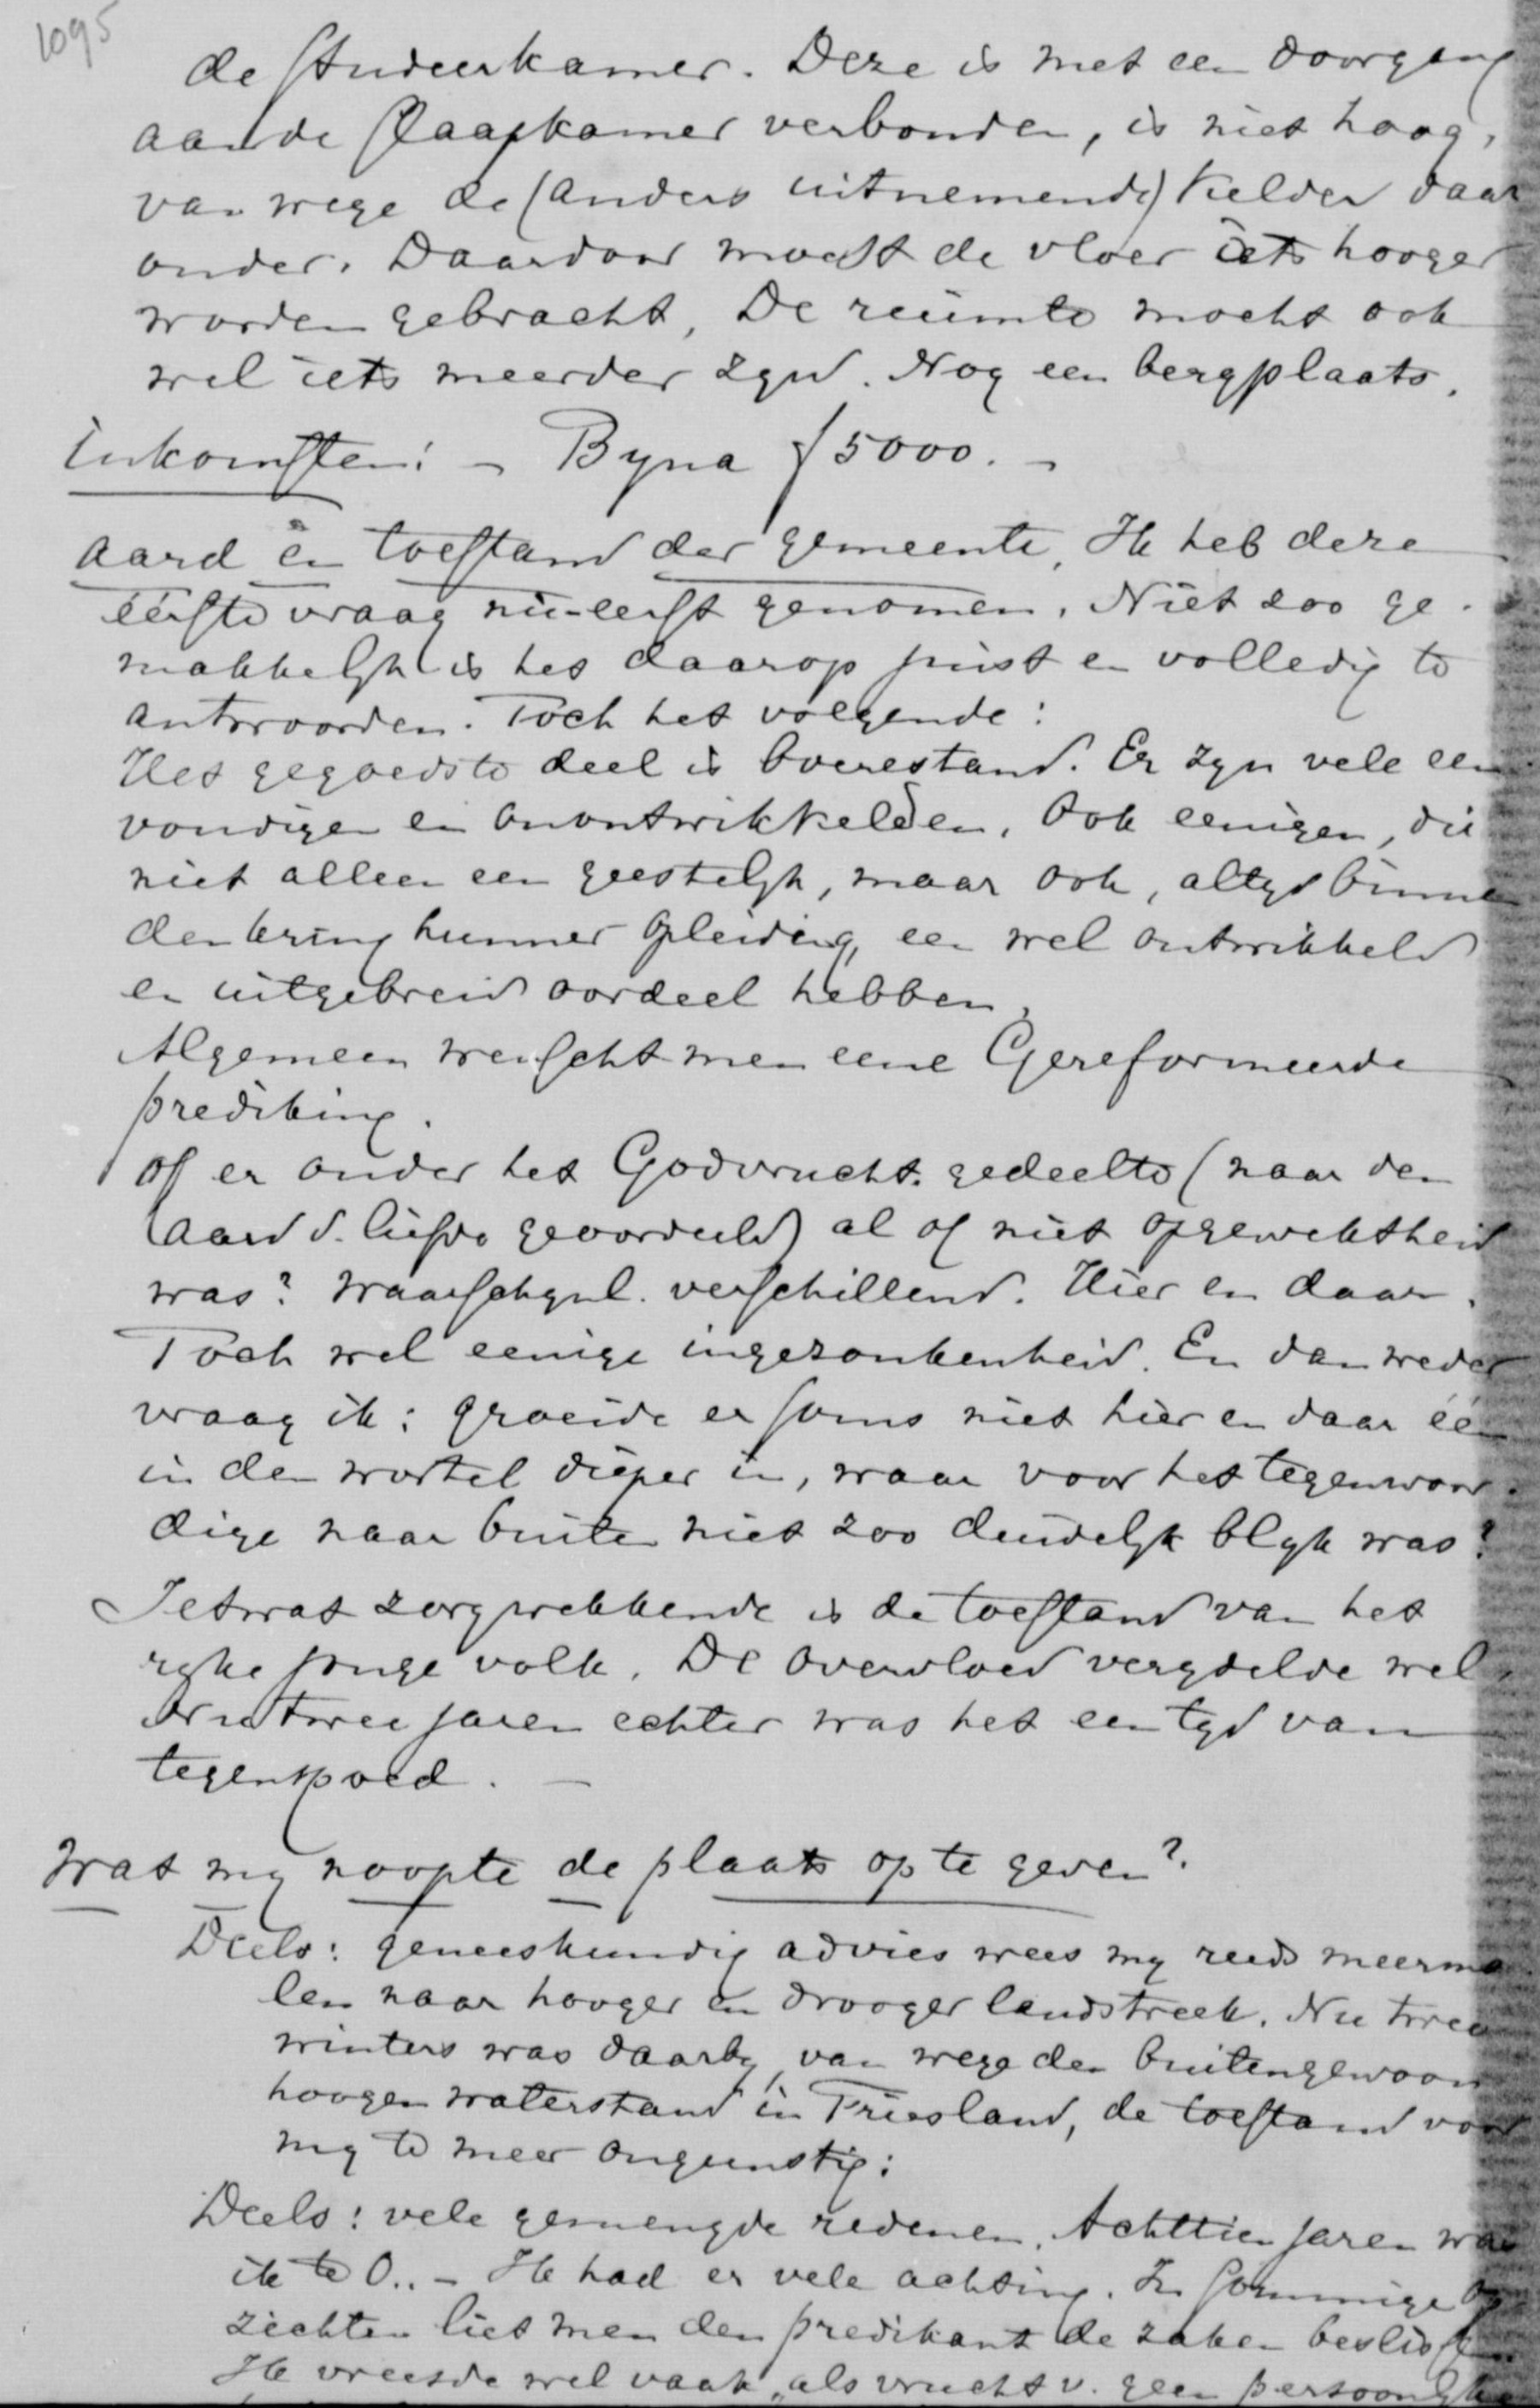 1095
de studeerkamer. Deze is met een doorgang
aan de slaapkamer verbonden, is niet hoog,
van wege de (anders uitnemende) kelder daar
onder. Daardoor moest de vloer iets hooger
worden gebracht, De ruimte mocht ook
wel iets meerder zyn. Nog een bergplaats.
Inkomsten: – Byna f 5000. –
Aard en toestand der gemeente, Ik heb deze
éérste vraag nu-eerst genomen. Niet zoo ge-
makkelyk is het daarop juist en volledig te
antwoorden. Toch het volgende:
Het gegoedste deel is boerestand. Er zyn vele een
voudigen en onontwikkelden. Ook eenigen, die
niet alleen een geestelyk, maar ook, altyd binnen
den kring hunner opleiding, een wel ontwikkeld
en uitgebreid oordeel hebben,
Algemeen wenscht men eene Gereformeerde
prediking.
Of er onder het Godvrucht. gedeelte (naar den
aard d. liefde geoordeeld) al of niet opgewektheid
was? waarschynl. verschillend. Hier en daar.
Toch wel eenige ingezonkenheid. En dan weder
vraag ik: groeide er soms niet hier en daar één
in den wortel dieper in, waar voor het tegenwoor-
dige naar buiten niet zoo duidelyk blyk was?
Ietwat zorgwekkende is de toestand van het
ryke jonge volk. De overvloed verydelde wel.
Nu twee jaren echter was het een tyd van
tegenspoed. –
Wat my noopte de plaats op te geven?
Deels: geneeskundig advies wees my reeds meerma
len naar hooger en drooger landstreek. Nu twee
winters was daarby, van wege den buitengewoon
hoogen waterstand in Friesland, de toestand voor
my te meer ongunstig:
Deels: vele gemengde redenen. Achttien jaren was
ik te O.. – Ik had er vele achting. In sommige op
zichten liet men den predikant de zaken beslissen.
Ik vreesde wel vaak „als vrucht v. geen